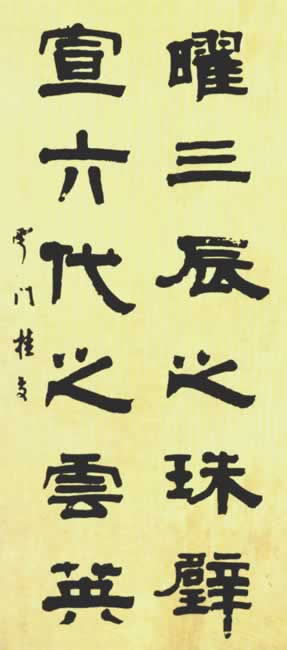 曜三辰之珠璧
宣六代之雲英
雩门桂复